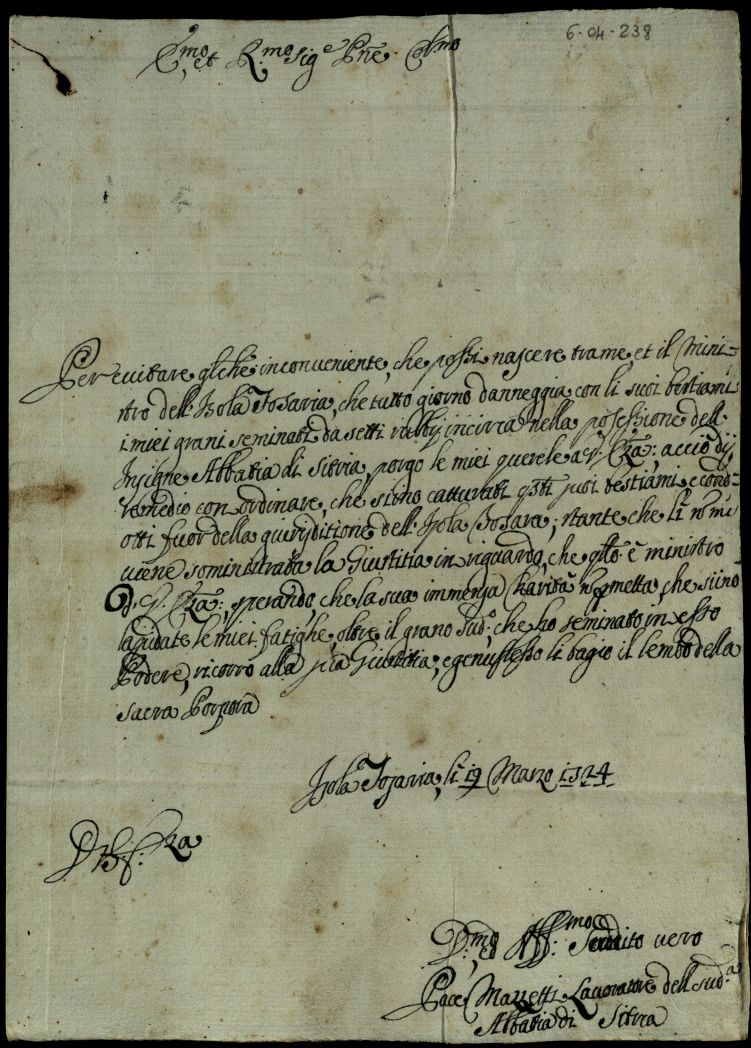 6-04-238
E.mo et R.mo Sig.e Pne. Col.mo
Per evitare qlche inconveniente, che possi nascere tra me, et il Mini=
stro dell'Isola Fosaria, che tutto giorno danneggia con li suoi bestiami
i miei grani seminati da setti rubbij incirca nella possessione dell'
Insigne Abbatia di Sitria, porgo le miei querele a Emza: acciò dij
remedio con ordinare, che siino catturati qsti suoi bestiami, e cond=
otti fuor della giurisditione dell'Isola Fosara; stante che li n mi
viene sominitrata la Giustitia in riguardo, che qsto è ministro
di V. Emza: sperando, che la sua immensa Charità n permetta, che siino
lapidate le miei fatighe, oltre il grano sud.o, che ho seminato in esso
Podere, ricorro alla sua Giustitia, e genuflesso li bagio il lembo della
sacra Porpora
Isola Fosaria, li 19 Marzo 1724
D V. Emza
D.mo Aff.mo Suddito vero
Pace Mazzetti Lavoratore dell sud.a
Abbatia di Sitria